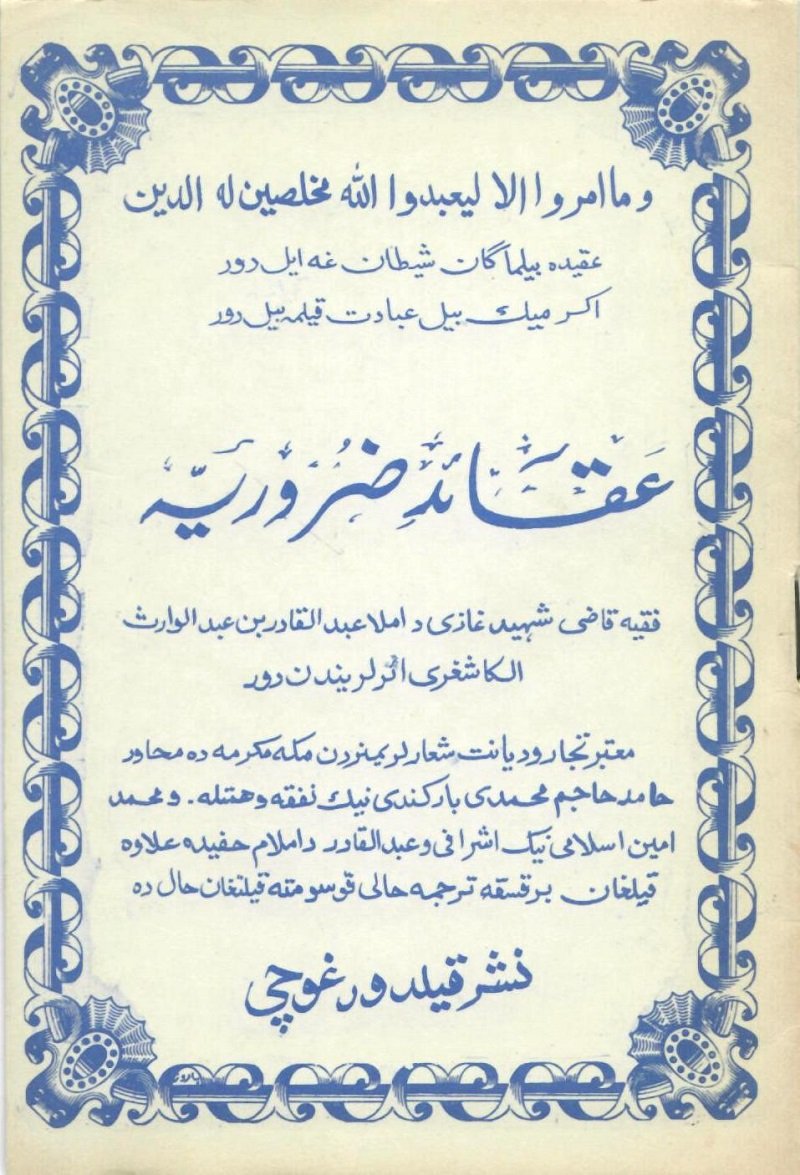 وما امروا الا ليعبدوا الله مخلصين له الدين
عقيده بيلماگان شيطان غه ايل دور
اكر ميڭ بيل عبادت قيلمه بيل دور
عَقَائدِ ضُرُوريّه
فقيه قاضى شهيد غازى داملا عبد القادر بن عبد الوارث
الكاشغرى اثرلريندن دور
معتبر تجار و ديانت شعارلريمزدن مكه مكرمه ده مجاور
حامد حاجم محمدى ياركندى نيك نفقه و همتله. و محمد
امين اسلامى نيك اشرافى و عبد القادر داملام حفيده علاوه
قيلغان بر قسقه ترجمه حالى قوسومته قيلنغان حال ده
نشر قيلدورغوچى